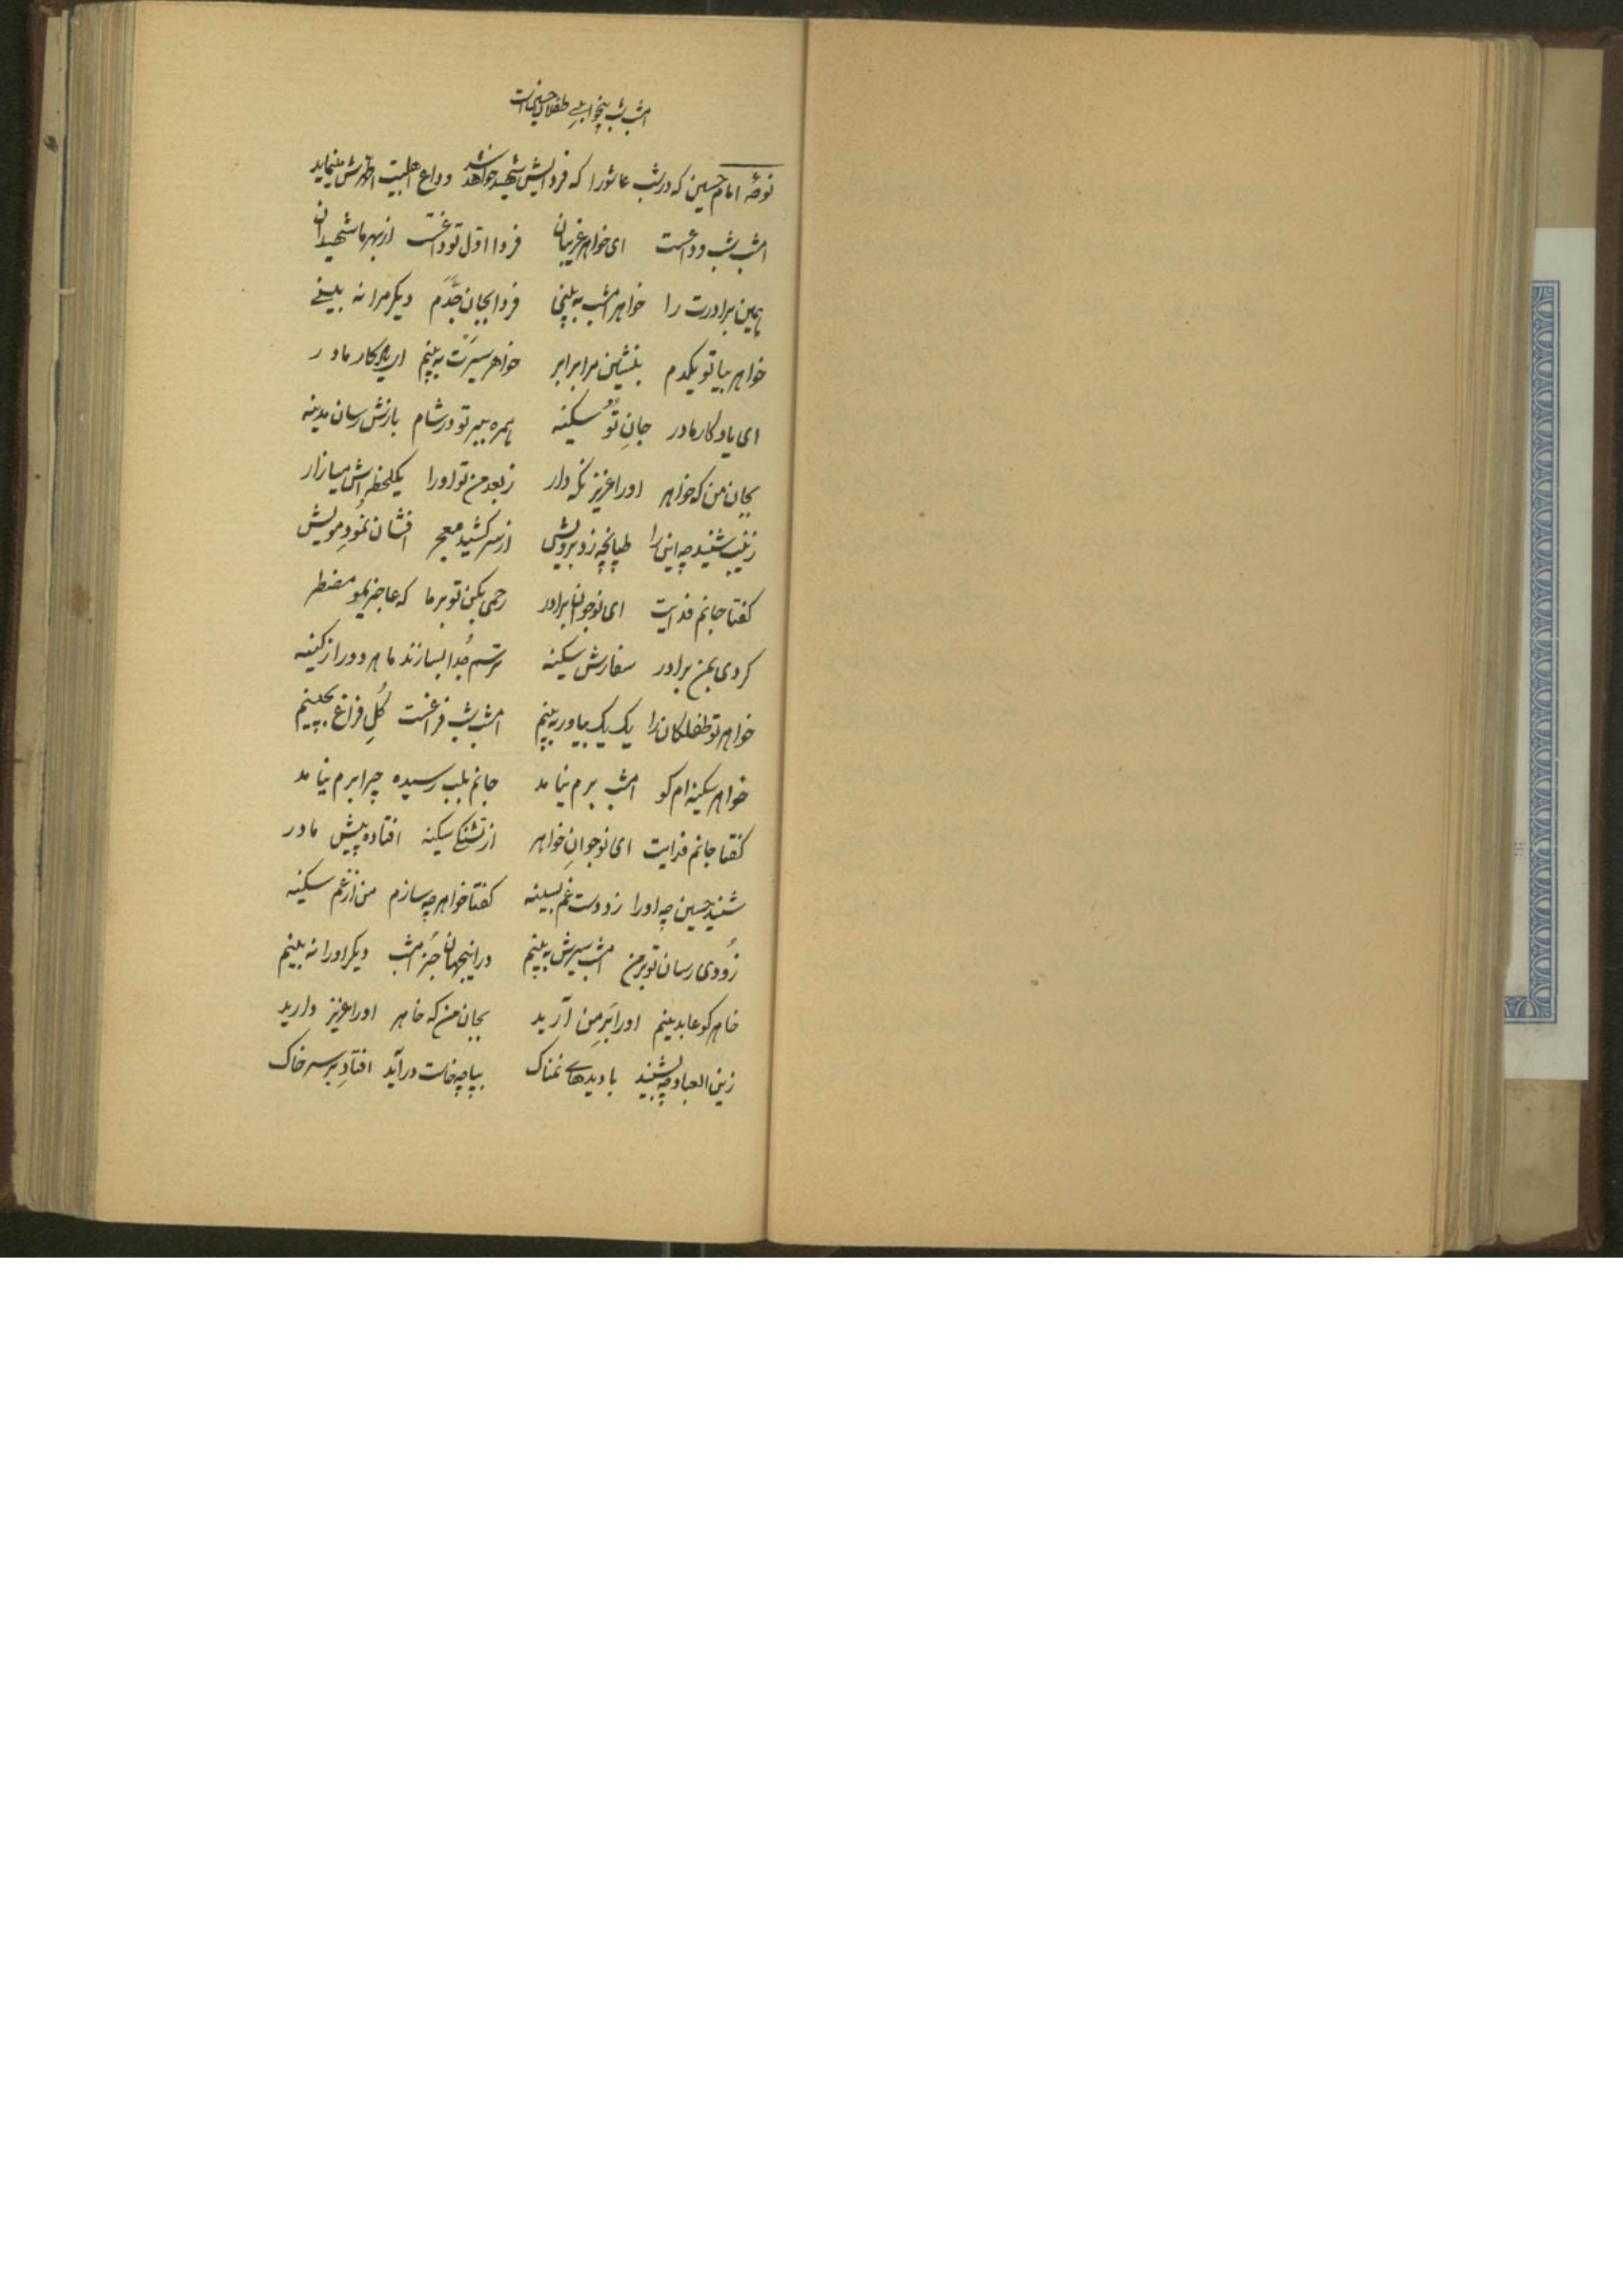 امشب شب بیخوابیِ طفلان حسین است
نوحهٔ امام حسین که در شب عاشورا که فردایش شهید خواهد شد وداع اهلبیت اطهرش مینماید
امشب شب وداعست ای خواهر غریبان فردا اول تو داغت از بهر ما شهیدان
ببین برادرت را خواهر امشب به بینی فردا بجان جَدَّم دیگر مرا نه بینے
خواهر بیا تو یکدم بنشین مرا برابر خواهر سیرَت به بینم ای یادگار مادر
ای یادگار مادر جانِ تو سکینه همره ببر تو در شام بازش رسان مدینه
بجان من که خواهر او را عزیز نگه دار ز بعد من تو او را یکلحظه اش میازار
زینب شنید چه این را طپانچه زد برویش از سر کشید معجر افشان نمُود مویش
گفتا جانم فدایت ای نوجوان برادر رحمی بکن تو بر ما که عاجزیم و مضطر
کردی بمن برادر سفارش سکینه ترسم جُدا بسازند ما هر دو را از کینه
خواهر تو طفلکان را یک یک بیاور به بینم امشب شب فراغست گُلِ فراغ بچینم
خواهر سکینه ام کو امشب برم نیامد جانم بلب رسیده چرا برم نیامد
گفتا جانم فدایت ای نوجوانِ خواهر از تشنگی سکینه افتاده پیش مادر
شنید حسین چه او را زد دست غم بسینه گفتا خواهر چه سازم من از غم سکینه
زُودی رسان تو بر من امشب سیرش به بینم در اینجهان جُز امشب دیگر او را نه بینم
خاهر کو عابدینم او را بَرِ من آرید بجان من که خاهر او را عزیز دارید
زین العباد چه بشنید با دیدهاے نمناک بپا چه خاست در آید افتادِ بر سر خاک